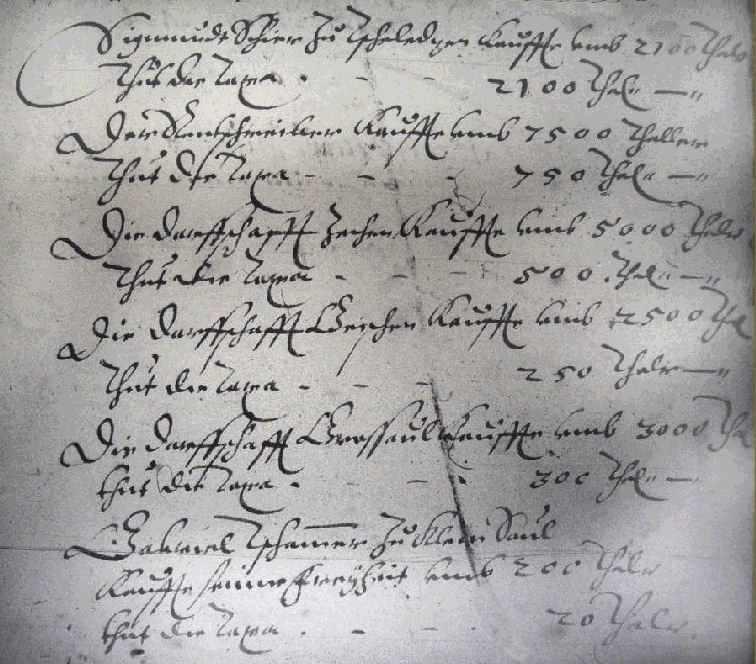 Sigmundt Schier zu Tscheledzen Kaufft umb 2100 Thaler
Thut die Taxa - - - 2100 Thal: —"
Der Kaufft umb 7500 Thaller
Thut die Taxa - - - 750 Thal: —"
Die dorffschafft Zechen Kaufft umb 5000 Thaler
Thut die Taxa - - - 500 Thal: —"
Die dorffschafft Geischen Kaufft umb 2500 Thal
Thut die Taxa - - - 250 Thaler —"
Die dorffschafft Grossaul Kaufft umb 3000 Thal
thut die Taxa - - - 300 Thal: —
Gabriel Tschammer zu Klein Saul
Kaufft seine Freyheit umb 200 Thaler
thut die Taxa - - - 20 Thaler